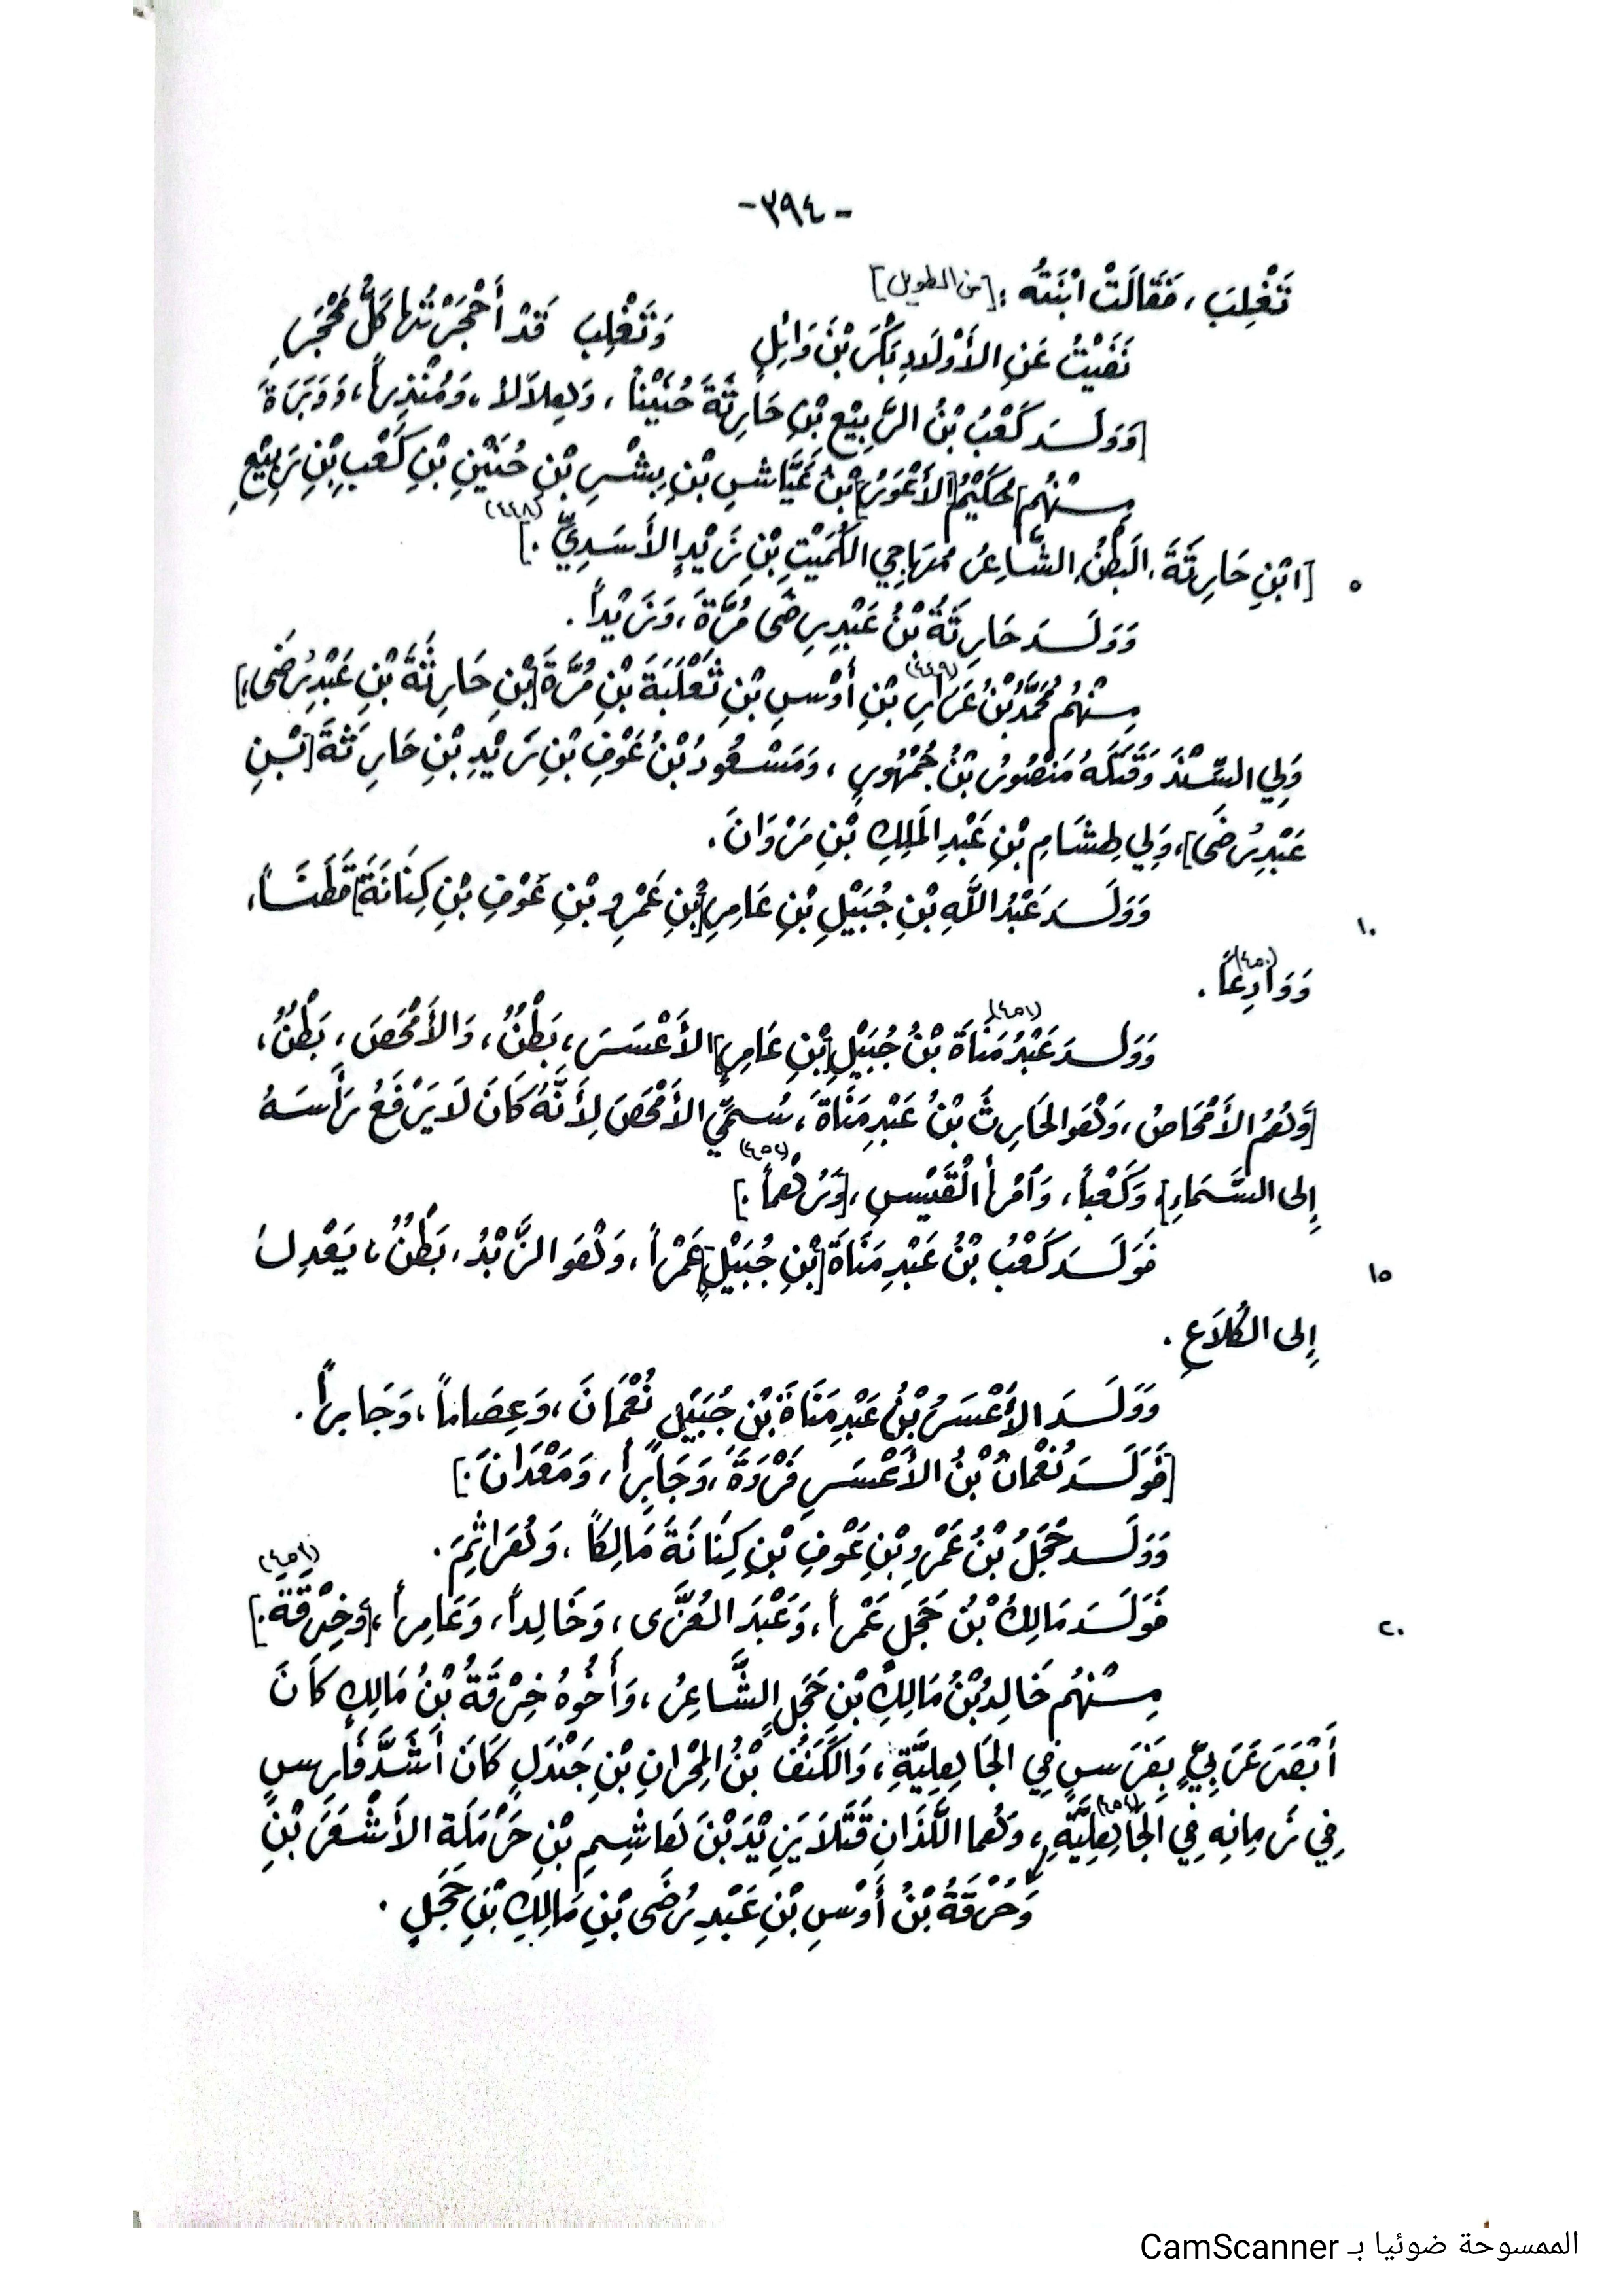 -٣٩٤-
تَغْلِبَ ، فَقَالَتْ ابْنَتُهُ : [من الطويل]
نَفَيْتُ عَنِ الأَوْلَادِ بَكْرَ بْنَ وَائِلٍ وَتَغْلِبَ قَدْ أَحْجَرْتُهَا كُلَّ مَحْجَرِ
[وَوَلَدَ كَعْبُ بْنُ الرَّبِيْعِ بْنِ حَارِثَةَ حُنَيْناً ، وَهِلاَلاً ، وَمُنْذِراً ، وَوَبَرَةَ
مِنْهُم] حَكِيْمُ [الأَعْوَرُ] بْنُ عَيَّاشِ بْنِ بِشْرِ بْنِ حُنَيْنِ بْنِ كَعْبِ بْنِ رَبِيْعِ
٥ [ابْنِ حَارِثَةَ ، البَطْنُ ، الشَّاعِرُ مُهَاجِي الكُمَيْتِ بْنِ زَيْدٍ الأَسَدِيِّ .] (٤٤٨)
وَوَلَدَ حَارِثَةُ بْنُ عَبْدِ رِضَى مُرَّةَ ، وَزَيْداً .
مِنْهُم مُحَمَّدُ بْنُ عَرَارِ (٤٤٩) بْنِ أَوْسِ بْنِ ثَعْلَبَةَ بْنِ مُرَّةَ [بْنِ حَارِثَةَ بْنِ عَبْدِ رُضَى]،
وَلِي السِّنْدَ وَقَتَلَهُ مَنْصُورُ بْنُ جُمْهُورٍ ، وَمَسْعُودُ بْنُ عَوْفِ بْنِ زَيْدِ بْنِ حَارِثَةَ [بْنِ
عَبْدِ رُضَى]، وَلِي لِهِشَامِ بْنِ عَبْدِ المَلِكِ بْنِ مَرْوَانَ .
١٠ وَوَلَدَ عَبْدُ اللَّهِ بْنِ جُبَيْلِ بْنِ عَامِرِ [بْنِ عَمْرِو بْنِ عَوْفِ بْنِ كِنَانَةَ] قَطَناً ،
وَوَادِعاً (٤٥٠) .
وَوَلَدَ عَبْدُ مَنَاةَ (٤٥١) بْنُ جُبَيْلِ [بْنِ عَامِرٍ] الأَعْسَرَ ، بَطْنٌ ، وَالأَمْحَصَ ، بَطْنٌ ،
[وَهُمُ الأَمْحَاصُ ، وَهُوَ الحَارِثُ بْنُ عَبْدِ مَنَاةَ ، سُمِّيَ الأَمْحَصَ لِأَنَّهُ كَانَ لَا يَرْفَعُ رَأْسَهُ
إِلى السَّمَاءِ]، وَكَعْباً ، وَامْرأَ القَيْسِ ، [وَرُهْماً (٤٥٢) .]
١٥ فَوَلَدَ كَعْبُ بْنُ عَبْدِ مَنَاةَ [بْنِ جُبَيْلٍ] عَمْراً ، وَهُوَ الزَّبْدُ ، بَطْنٌ ، يَعْدِلُ
إِلى الكُلاَعِ .
وَوَلَدَ الأَعْسَرُ بْنُ عَبْدِ مَنَاةَ بْنِ جُبَيْلٍ نُعْمَانَ ، وَعِصَاماً ، وَجَابِراً .
[فَوَلَدَ نُعْمَانُ بْنُ الأَعْسَرِ فَرْوَةَ ، وَجَابِراً ، وَمَعْدَانَ .]
وَوَلَدَ حَجَلُ بْنُ عَمْرِو بْنِ عَوْفِ بْنِ كِنَانَةَ مَالِكاً ، وَهَرَاثِمَ .
٢٠ فَوَلَدَ مَالِكُ بْنُ حَجَلٍ عَمْراً ، وَعَبْدَ العُزَّى ، وَخَالِداً ، وَعَامِراً ، [وَخِرْقَةَ .]
مِنْهُم خَالِدُ بْنُ مَالِكِ بْنِ حَجَلٍ الشَّاعِرُ ، وَأَخُوهُ خِرْقَةُ بْنُ مَالِكٍ كَانَ
أَبْصَرَ عَرَبِيٍّ بِفَرَسٍ فِي الجَاهِلِيَّةِ ، وَالكَنَفُ بْنُ المِحْرَانِ بْنِ جَنْدَلٍ كَانَ أَشَدَّ فَارِسٍ
فِي زَمِانِهِ فِي الجَاهِلِيَّةِ ، وَهُما اللَّذَانِ قَتَلَا يَزِيْدَ بْنَ هَاشِمِ بْنِ حَرْمَلَة الأَشْعَرَ بْنِ
وَحُرْقَةُ بْنُ أَوْسِ بْنِ عَبْدِ رُضَى بْنِ مَالِكِ بْنِ حَجَلٍ .
الممسوحة ضوئيا بـ CamScanner